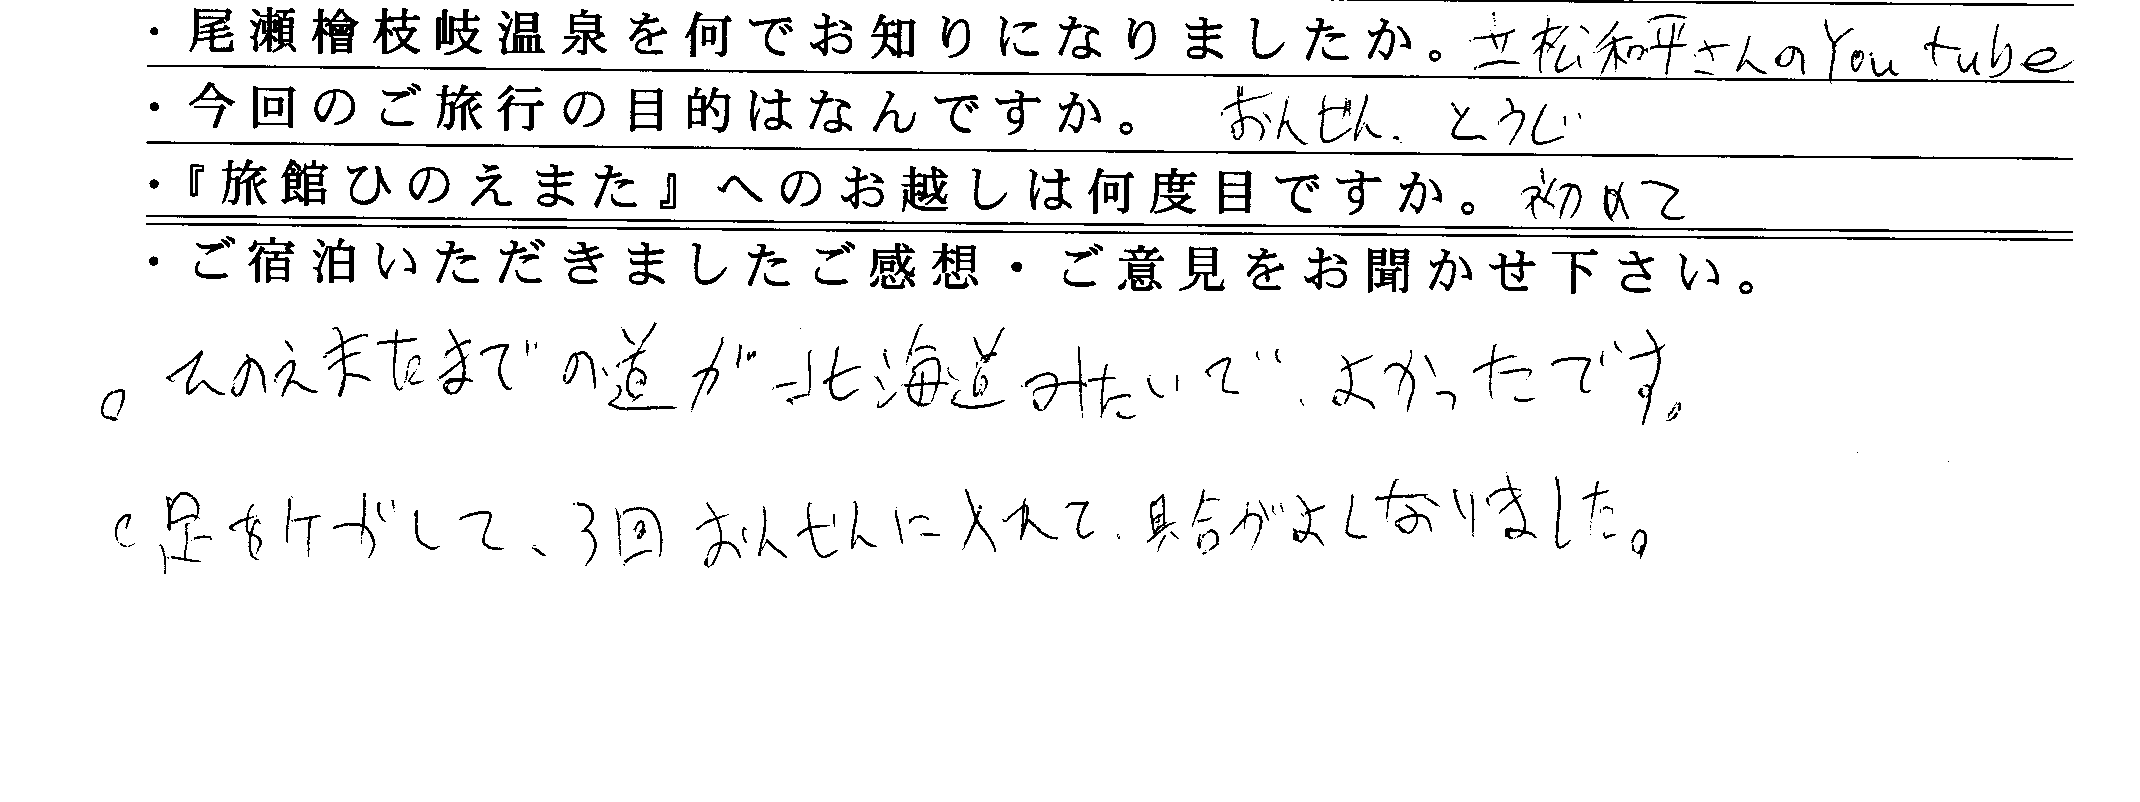 ・尾瀬檜枝岐温泉を何でお知りになりましたか。立松和平さんのYou tube
・今回のご旅行の目的はなんですか。 おんせん、とうじ
・『旅館ひのえまた』へのお越しは何度目ですか。初めて
・ご宿泊いただきましたご感想・ご意見をお聞かせ下さい。
。ひのえまたまでの道が北海道みたいで、よかったです。
。足をケガして、3回おんせんに入れて、具合がよくなりました。